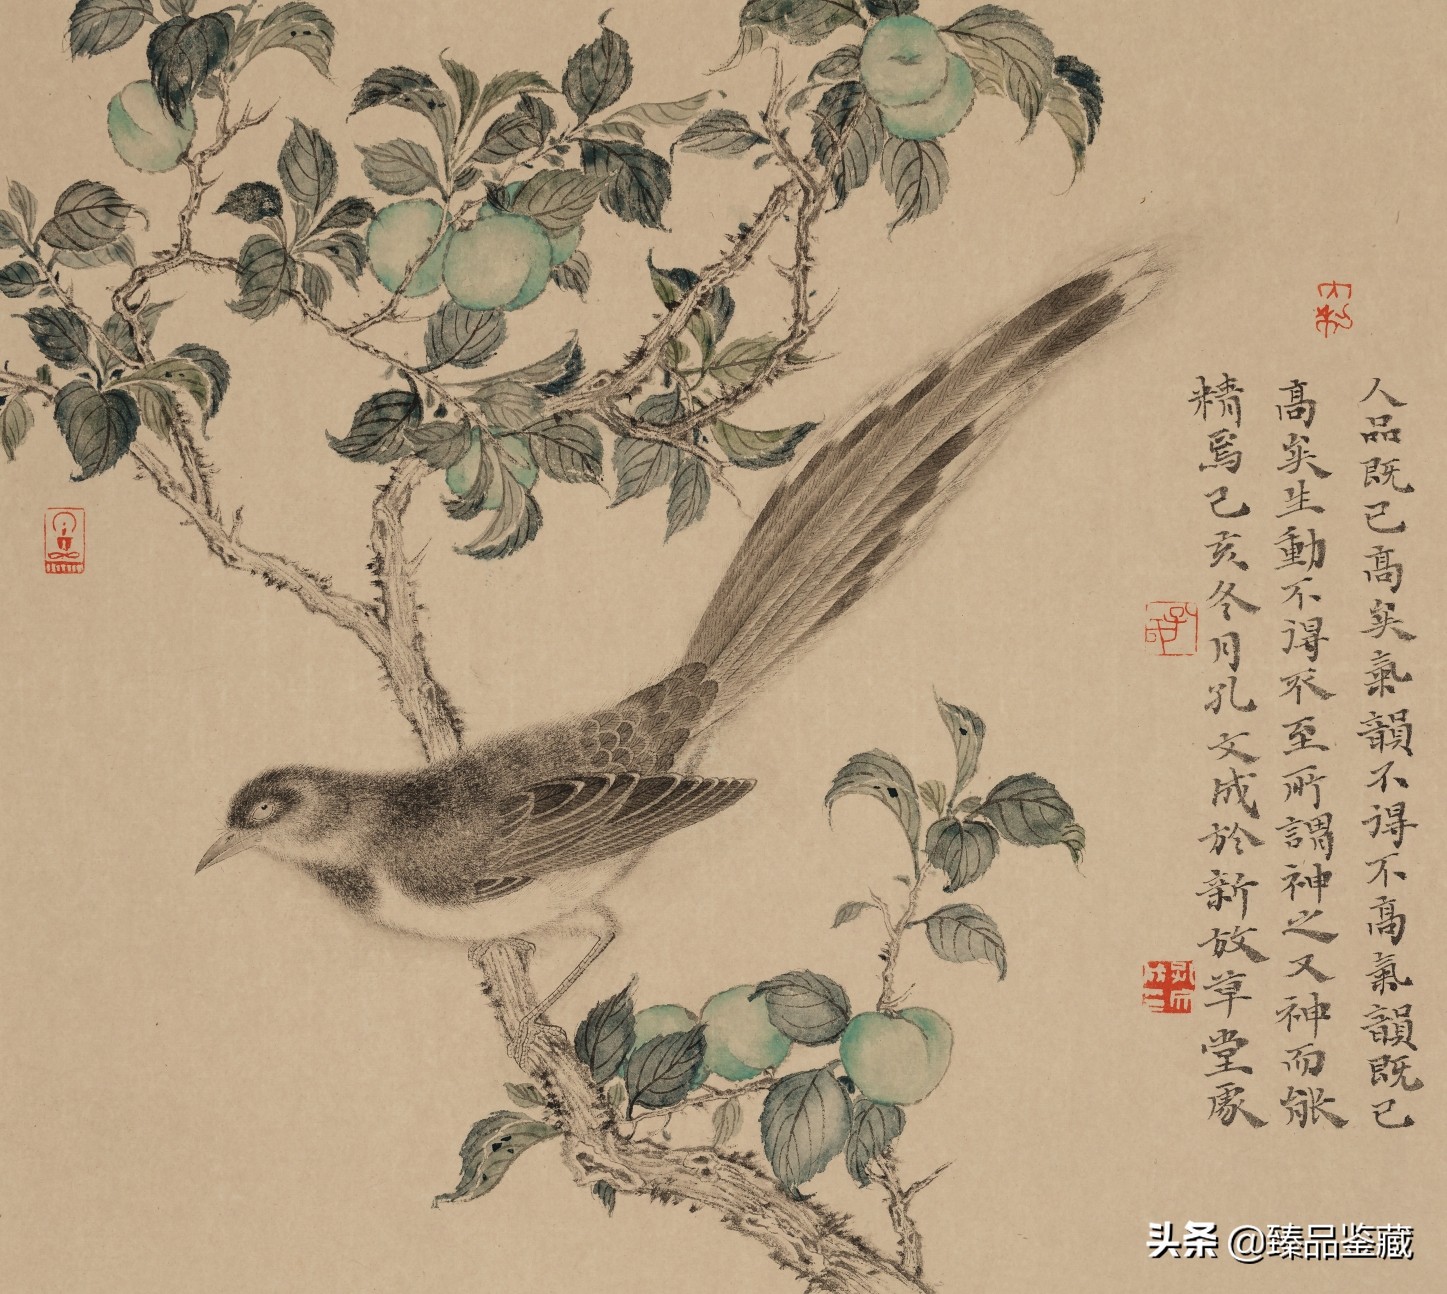 人品既已高矣氣韻不得不高氣韻既已
高矣生動不得不至所謂神之又神而能
精焉己亥冬月孔文成於新放草堂處
头条 @臻品鉴藏